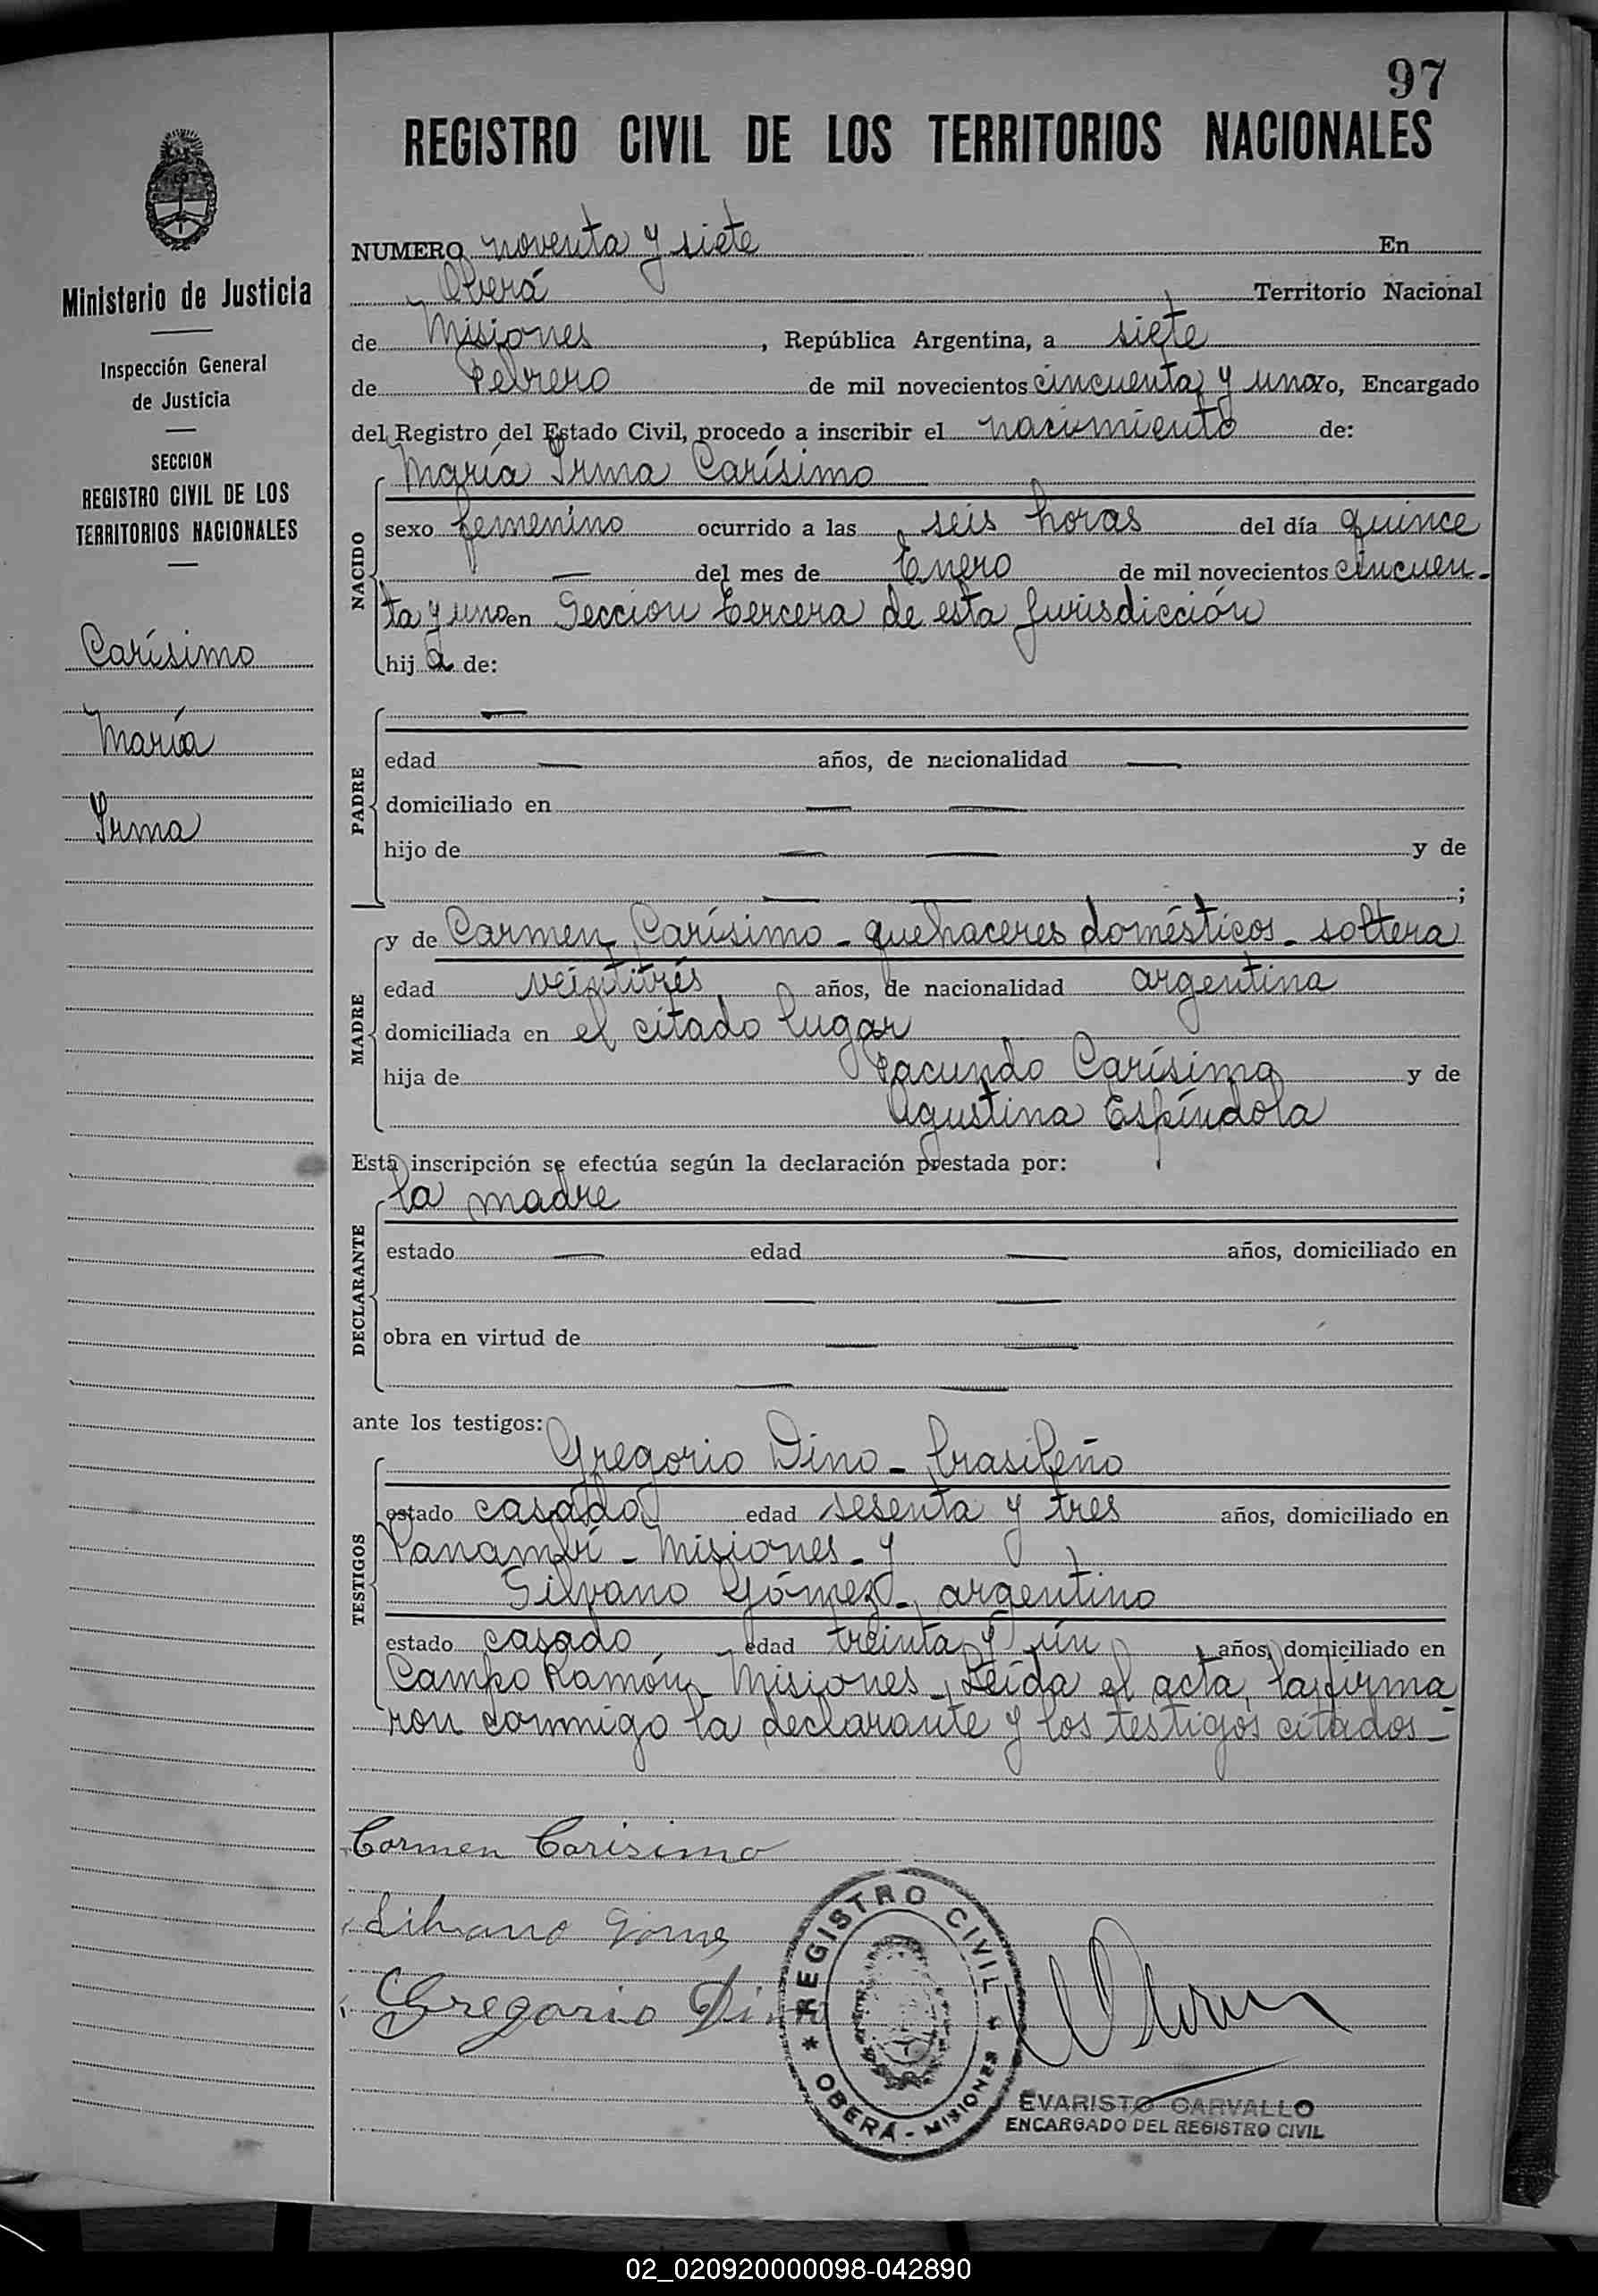 97
REGISTRO CIVIL DE LOS TERRITORIOS NACIONALES
Ministerio de Justicia
Inspección General
de Justicia
SECCION
REGISTRO CIVIL DE LOS
TERRITORIOS NACIONALES
Carísimo
María
Irma
NUMERO noventa y siete En
Oberá Territorio Nacional
de Misiones, República Argentina, a siete
de Febrero de mil novecientos cincuenta y uno Yo, Encargado
del Registro del Estado Civil, procedo a inscribir el nacimiento de:
NACIDO
María Irma Carísimo
sexo femenino ocurrido a las seis horas del día quince
— del mes de Enero de mil novecientos cincuen-
ta y uno en Seccion tercera de esta Jurisdicción
hija de:
PADRE
—
edad — años, de nacionalidad —
domiciliado en — —
hijo de — — y de
— — ;
MADRE
y de Carmen Carísimo - quehaceres domésticos - soltera
edad veintitrés años, de nacionalidad argentina
domiciliada en el citado lugar
hija de Facundo Carísimo y de
Agustina Espíndola
Esta inscripción se efectúa según la declaración prestada por:
DECLARANTE
la madre
estado — edad — años, domiciliado en
— —
obra en virtud de — —
— —
ante los testigos:
TESTIGOS
Gregorio Dino - brasileño
estado casado edad sesenta y tres años, domiciliado en
Panambí - Misiones - y
Silvano Gómez - argentino
estado casado edad treinta y un años, domiciliado en
Campo Ramón - Misiones - Leída el acta, la firma
ron conmigo la declarante y los testigos citados -
Carmen Carisimo
Silvano Gomez
Gregorio Dino
REGISTRO CIVIL
* OBERÁ - MISIONES *
EVARISTO CARVALLO
ENCARGADO DEL REGISTRO CIVIL
02_020920000098-042890